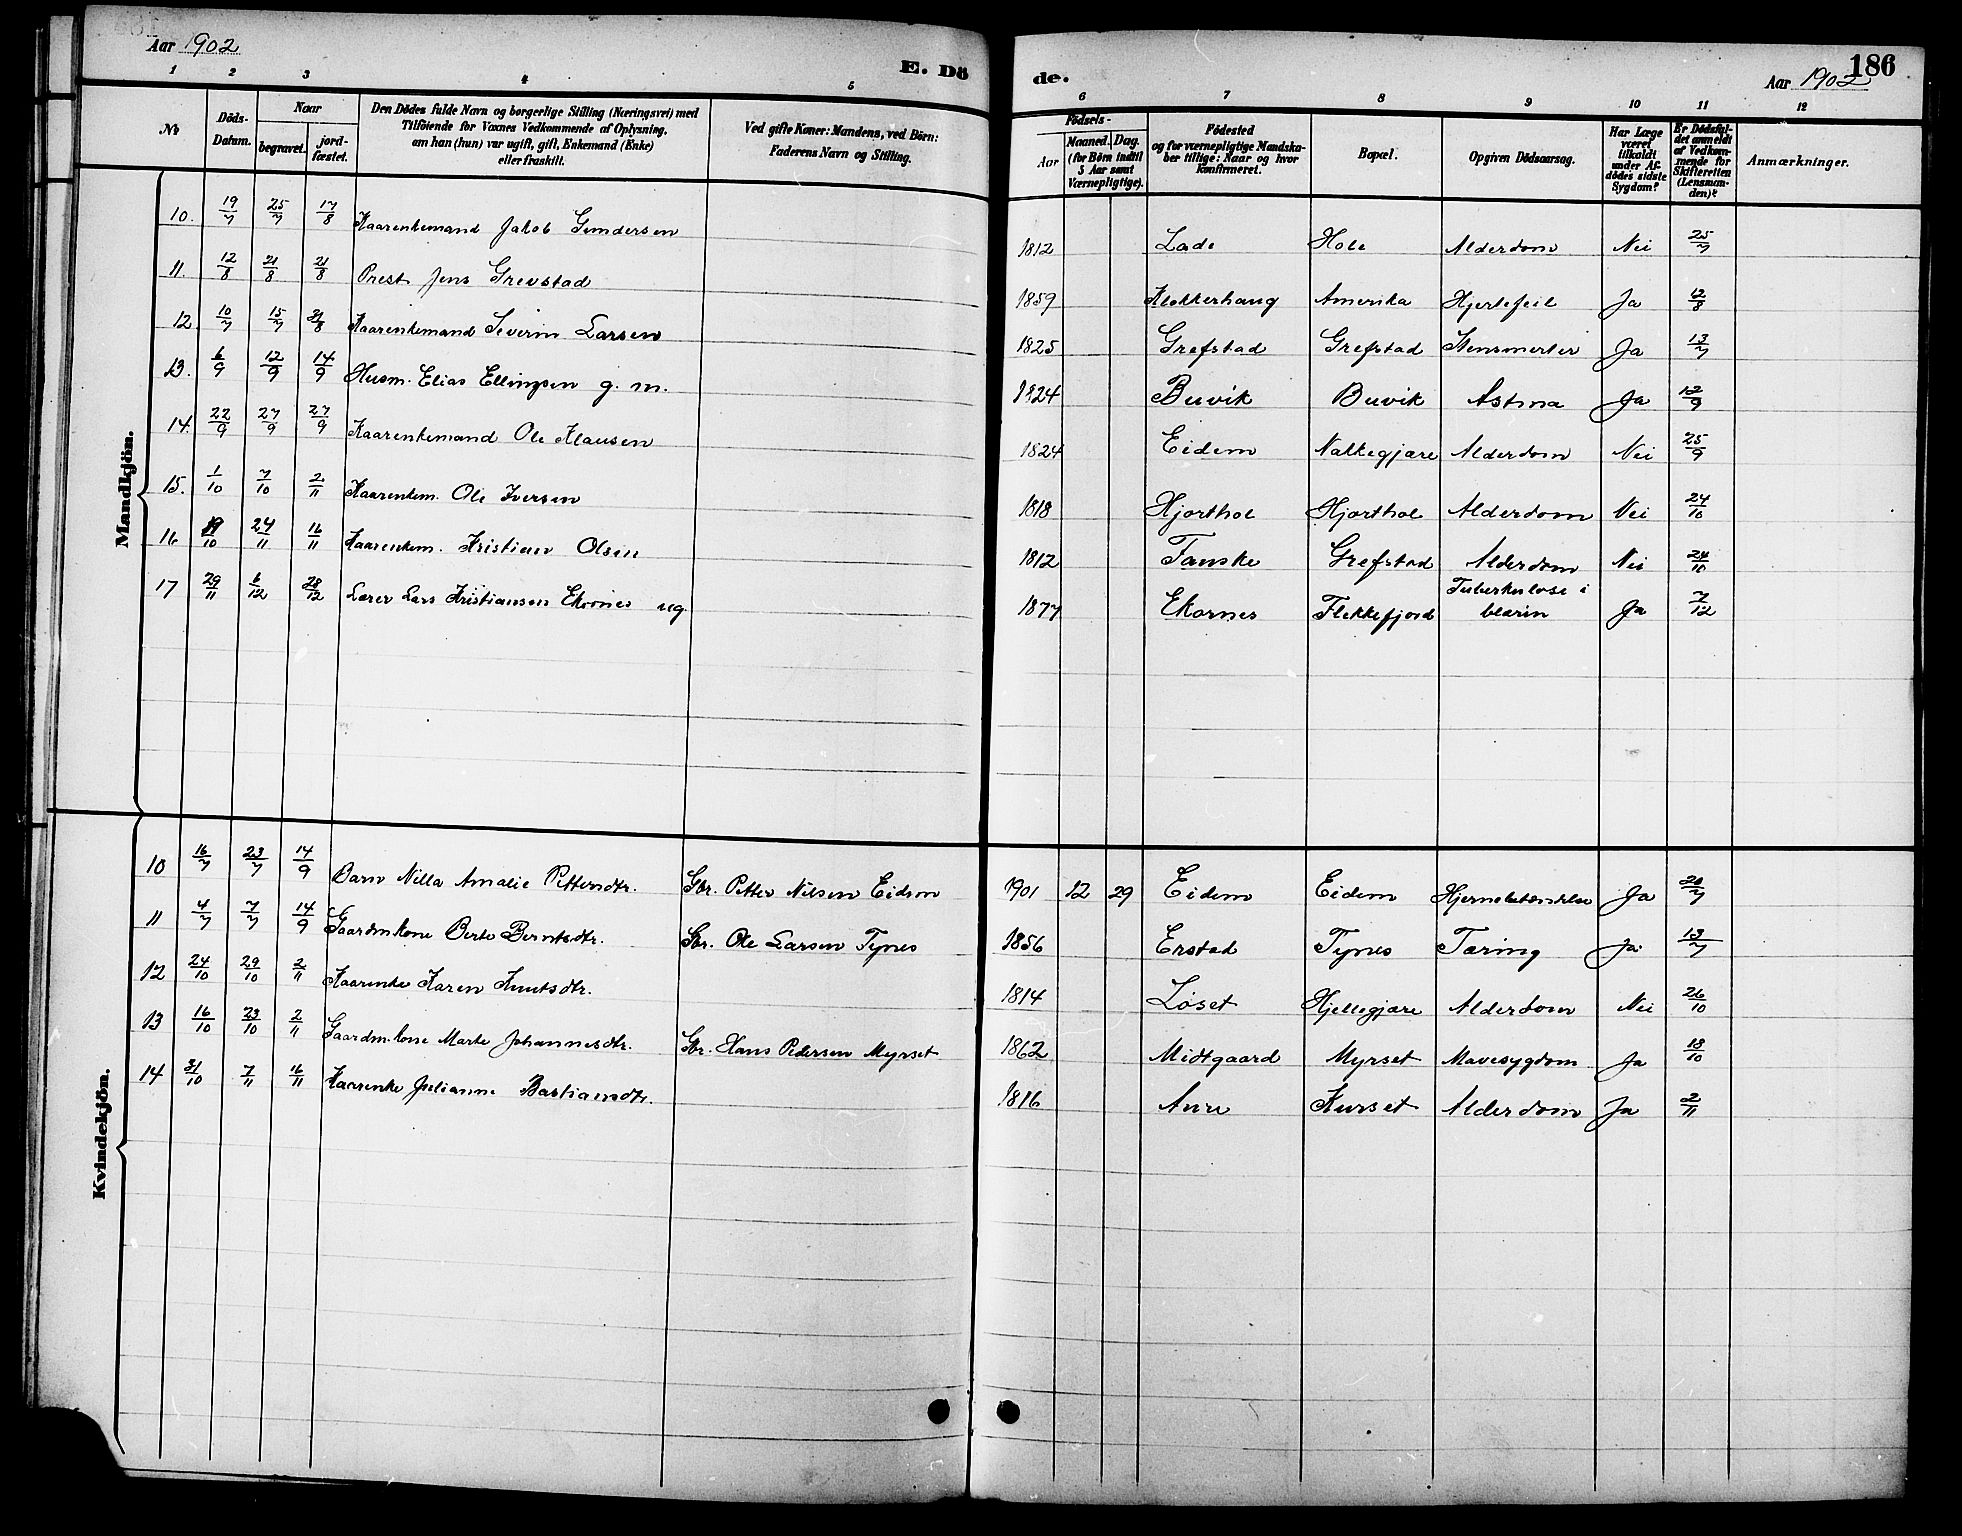 Aar 1902
E. Dö
de.
Aar 1902
186
1 2 3 4 5
6 7 8 9 10 11 12
No
Döds-Datum.
Naar
begravet.
jord-fæstet.
Den Dödes fulde Navn og borgerlige Stilling (Næringsvei) med
Tilföiende for Voxnes Vedkommende af Oplysning,
om han (hun) var ugift, gift, Enkemand (Enke)
eller fraskilt.
Ved gifte Koner: Mandens, ved Börn:
Faderens Navn og Stilling.
Födsels-
Aar
Maaned.
Dag.
(for Börn indtil
5 Aar samt
Værnepligtige).
Födested
og for værnepligtige Mandska-
ber tillige: Naar og hvor
konfirmeret.
Bopæl.
Opgiven Dödsaarsag.
Har Læge
været
tilkaldt
under Af-
dödes sidste
Sygdom?
Er Dödsfal-
det anmeldt
af Vedkom-
mende for
Skifteretten
(Lensman-
den)?
Anmærkninger.
Mandkjön.
10. 19/7 25/7 17/8 Kaarenkemand Jakob Gundersen 1812 Lade Hole Alderdom Nei 25/7
11. 12/8 21/8 21/8 Prest Jens Grevstad 1859 Klokkerhaug Amerika Hjertefeil Ja 12/8
12 10/7 15/7 31/8 Kaarenkemand Severin Larsen 1825 Grefstad Grefstad Stensmerter Ja 13/7
13. 6/9 12/9 14/9 Husm. Elias Ellingsen g. m. 1824 Buvik Buvik Astma Ja 12/9
14. 22/9 27/9 27/9 Kaarenkemand Ole Klausen 1824 Eidem Nakkegjære Alderdom Nei 25/9
15. 1/10 7/10 2/11 Kaarenkem. Ole Iversen 1818 Hjorthol Hjorthol Alderdom Nei 24/10
16 19/10 24/11 16/11 Kaarenkem. Kristian Olsen 1812 Fauske Grefstad Alderdom Nei 24/10
17 29/11 6/12 28/12 Lærer Lars Kristiansen Ekornes ug. 1877 Ekornes Flekkefjord Tuberkulose i
blærin Ja 7/12
Kvindekjön.
10 16/7 23/7 14/9 Barn Nilla Amalie Pettersdtr. Gbr. Petter Nilsen Eidem 1901 12 29 Eidem Eidem Hjernebetændelse Ja 20/7
11 4/7 7/7 14/9 Gaardmkone Berte Berntsdtr. Gbr. Ole Larsen Tynes 1856 Erstad Tynes Tæring Ja 13/7
12 24/10 29/10 2/11 Kaarenke Karen Knutsdtr. 1814 Løset Hjellegjære Alderdom Nei 26/10
13 16/10 23/10 2/11 Gaardm.kone Marte Johannesdtr. Gbr. Hans Pedersen Myrset 1862 Midtgaard Myrset Mavesygdom Ja 18/10
14 31/10 7/11 16/11 Kaarenke Julianne Bastiansdtr. 1816 Aure Kurset Alderdom Ja 2/11